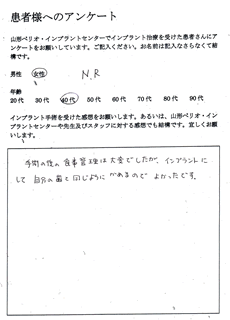 患者様へのアンケート
山形ペリオ・インプラントセンターでインプラント治療を受けた患者さんにア
ンケートをお願いしています。ご記入ください。お名前は記入なさらなくて結
構です。
男性 女性 N.R
年齢
20代 30代 40代 50代 60代 70代 80代 90代
インプラント手術を受けた感想をお願いします。あるいは、山形ペリオ・イン
プラントセンターや先生及びスタッフに対する感想でも結構です。宜しくお願
いします。
手術の後の食事管理は大変でしたが、インプラントに
して自分の歯と同じようにかめるのでよかったです。